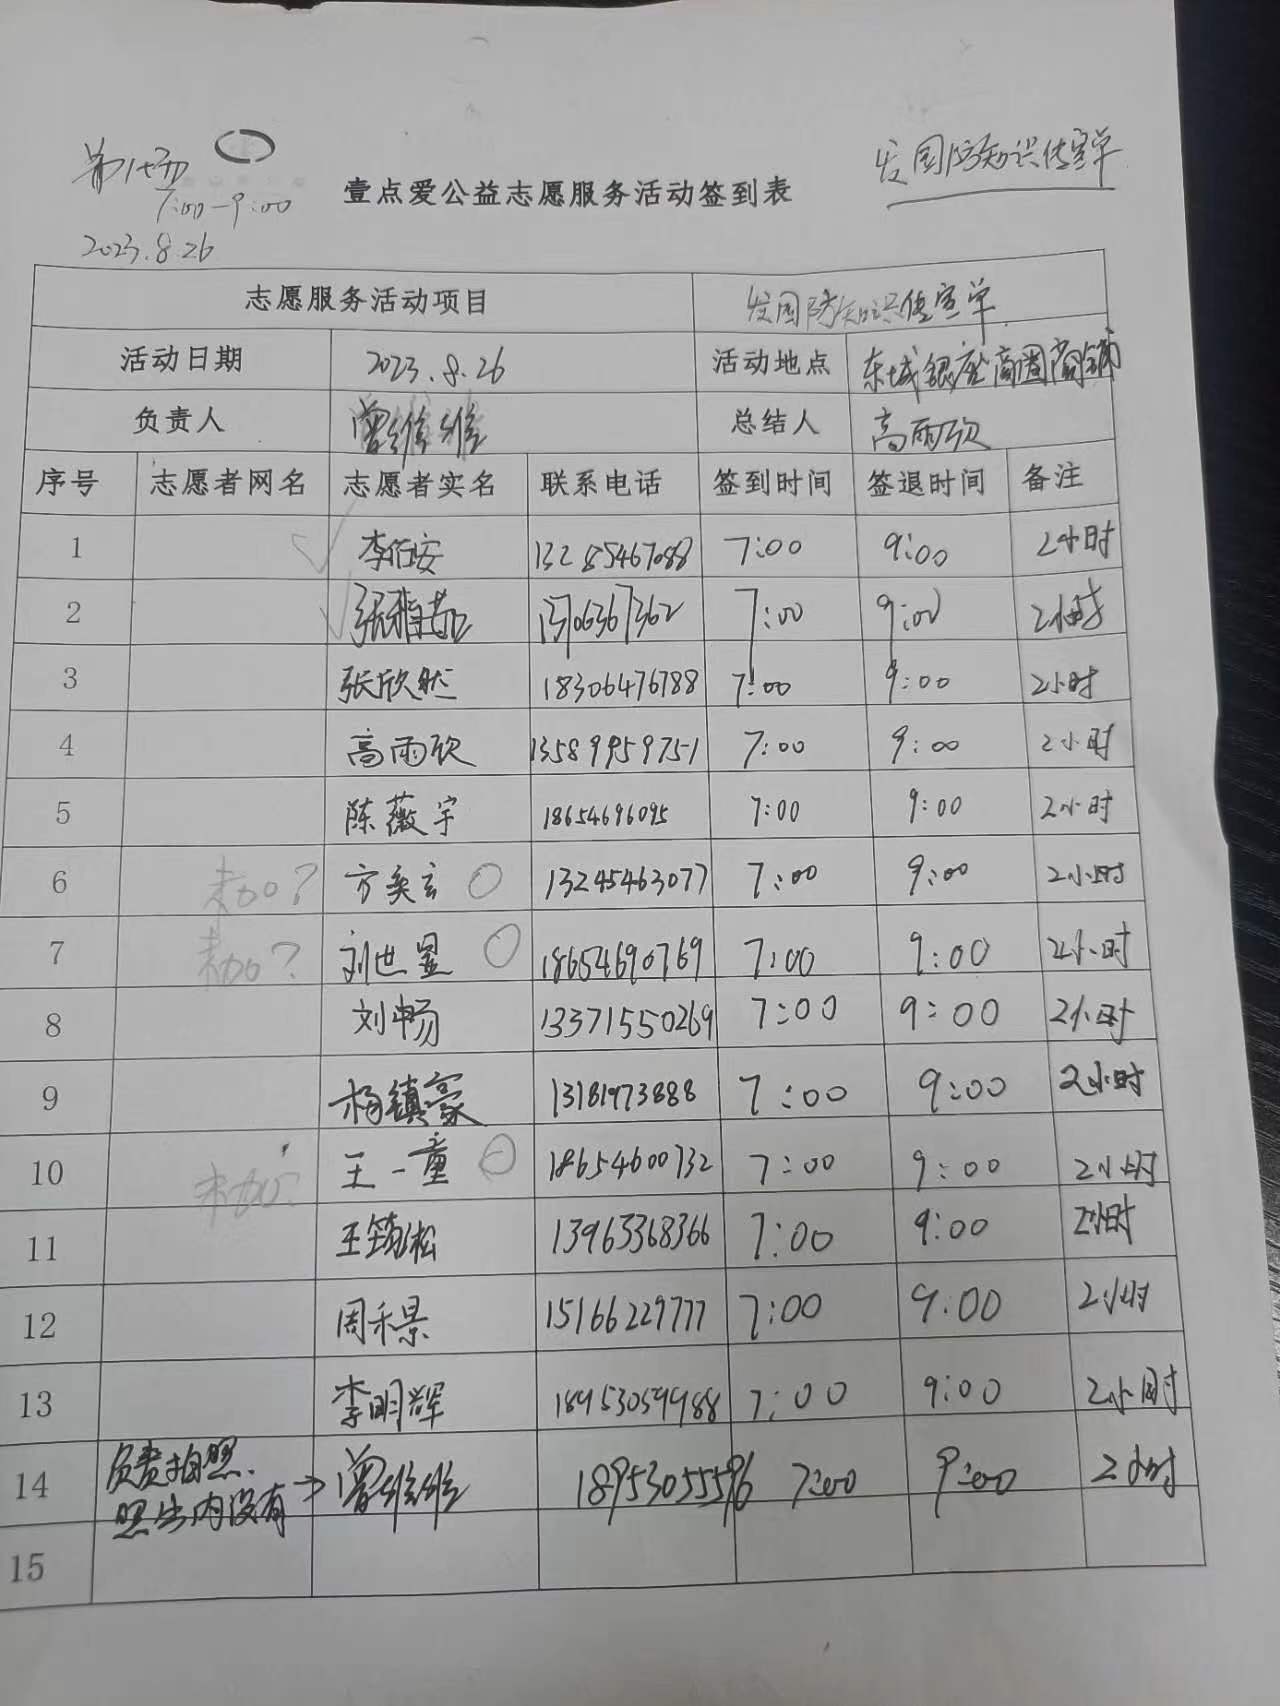 第1场
7:00-9:00
2023.8.26
发国防知识传宣单
壹点爱公益志愿服务活动签到表
志愿服务活动项目 发国防知识传宣单
活动日期 2023.8.26 活动地点 东城银座商圈商铺
负责人 曾维维 总结人 高雨欣
序号 志愿者网名 志愿者实名 联系电话 签到时间 签退时间 备注
1 李佰安 13285467088 7:00 9:00 2小时
2 张雅茹 7:00 9:00 2小时
3 张欣然 18306476788 7:00 9:00 2小时
4 高雨欣 13589959751 7:00 9:00 2小时
5 陈薇宇 18654696095 7:00 9:00 2小时
6 未加? 方奕玄 13245463077 7:00 9:00 2小时
7 未加? 刘世昱 18654690769 7:00 9:00 2小时
8 刘畅 13371550269 7:00 9:00 2小时
9 杨镇豪 13181973888 7:00 9:00 2小时
10 未加? 王一童 18654600732 7:00 9:00 2小时
11 王筠松 13963368366 7:00 9:00 2小时
12 周禾景 15166229777 7:00 9:00 2小时
13 李明辉 18953059988 7:00 9:00 2小时
14 负责拍照. 照片内没有→ 曾维维 18953055596 7:00 9:00 2小时
15